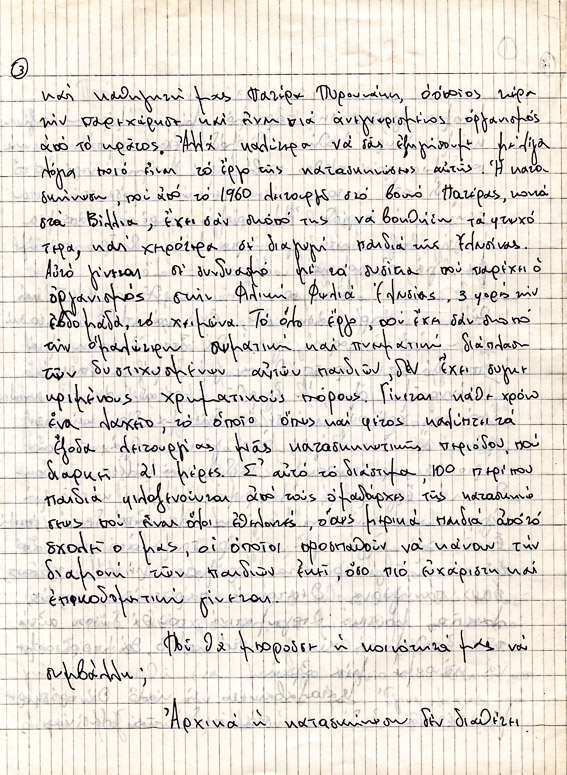 ③
και καθηγητή μας Πατέρα Πυρουνάκη, ο όποίος πέρα
τήν παραχώρηση καί είναι πιά άναγνωρισμένος όργανισμός
άπό τό κράτος. Άλλά καλύτερα νά σάς έξηγήσουμε με λίγα
λόγια ποιό είναι τό έργο τής κατασκηνώσεως αύτής. Ή κατα
σκήνωση, πού άπό τό 1960 λειτουργεί στό βουνό Πατέρας, κοντά
στά Βίλλια, έχει σάν σκοπό της νά βοηθήσει τά φτωχό
τερα, και χειρότερα σέ διαμονή παιδιά τής Έλευσίνας.
Αύτό γίνεται σέ συνδυασμό μέ τά συσίτια πού παρέχει ό
όργανισμός στήν Φιλική Φωλιά Έλευσίνας, 3 φορές τήν
έβδομάδα, τό χειμώνα. Τό όλο έργο, πού έχει σάν σκοπό
τήν όμαλώτερη σωματική καί πνευματική διάπλαση
τών δυστυχισμένων αύτών παιδιών, δέν έχει συγκε
κριμένους χρηματικούς πόρους. Γίνεται κάθε χρόνο
ένα λαχείο, τό όποίο όπως καί φέτος καλύπτει τά
έξοδα λειτουργίας μιάς κατασκηνωτικής περιόδου, πού
διαρκεί 21 μέρες. Σ' αύτό τό διάστημα, 100 περίπου
παιδιά φιλοξενούνται άπό τούς όμαδάρχες τής κατασκηνώ
σεως πού είναι όλοι έθελοντές, όπως μερικά παιδιά άπό τό
σχολείο μας, οί όποίοι προσπαθούν νά κάνουν τήν
διαμονή τών παιδιών έκεί, όσο πιό εύχάριστη καί
έποικοδομητική γίνεται.
Πού θά μπορούσε ή κοινότητά μας νά
συμβάλλει;
Άρχικά ή κατασκήνωση δέν διαθέτει